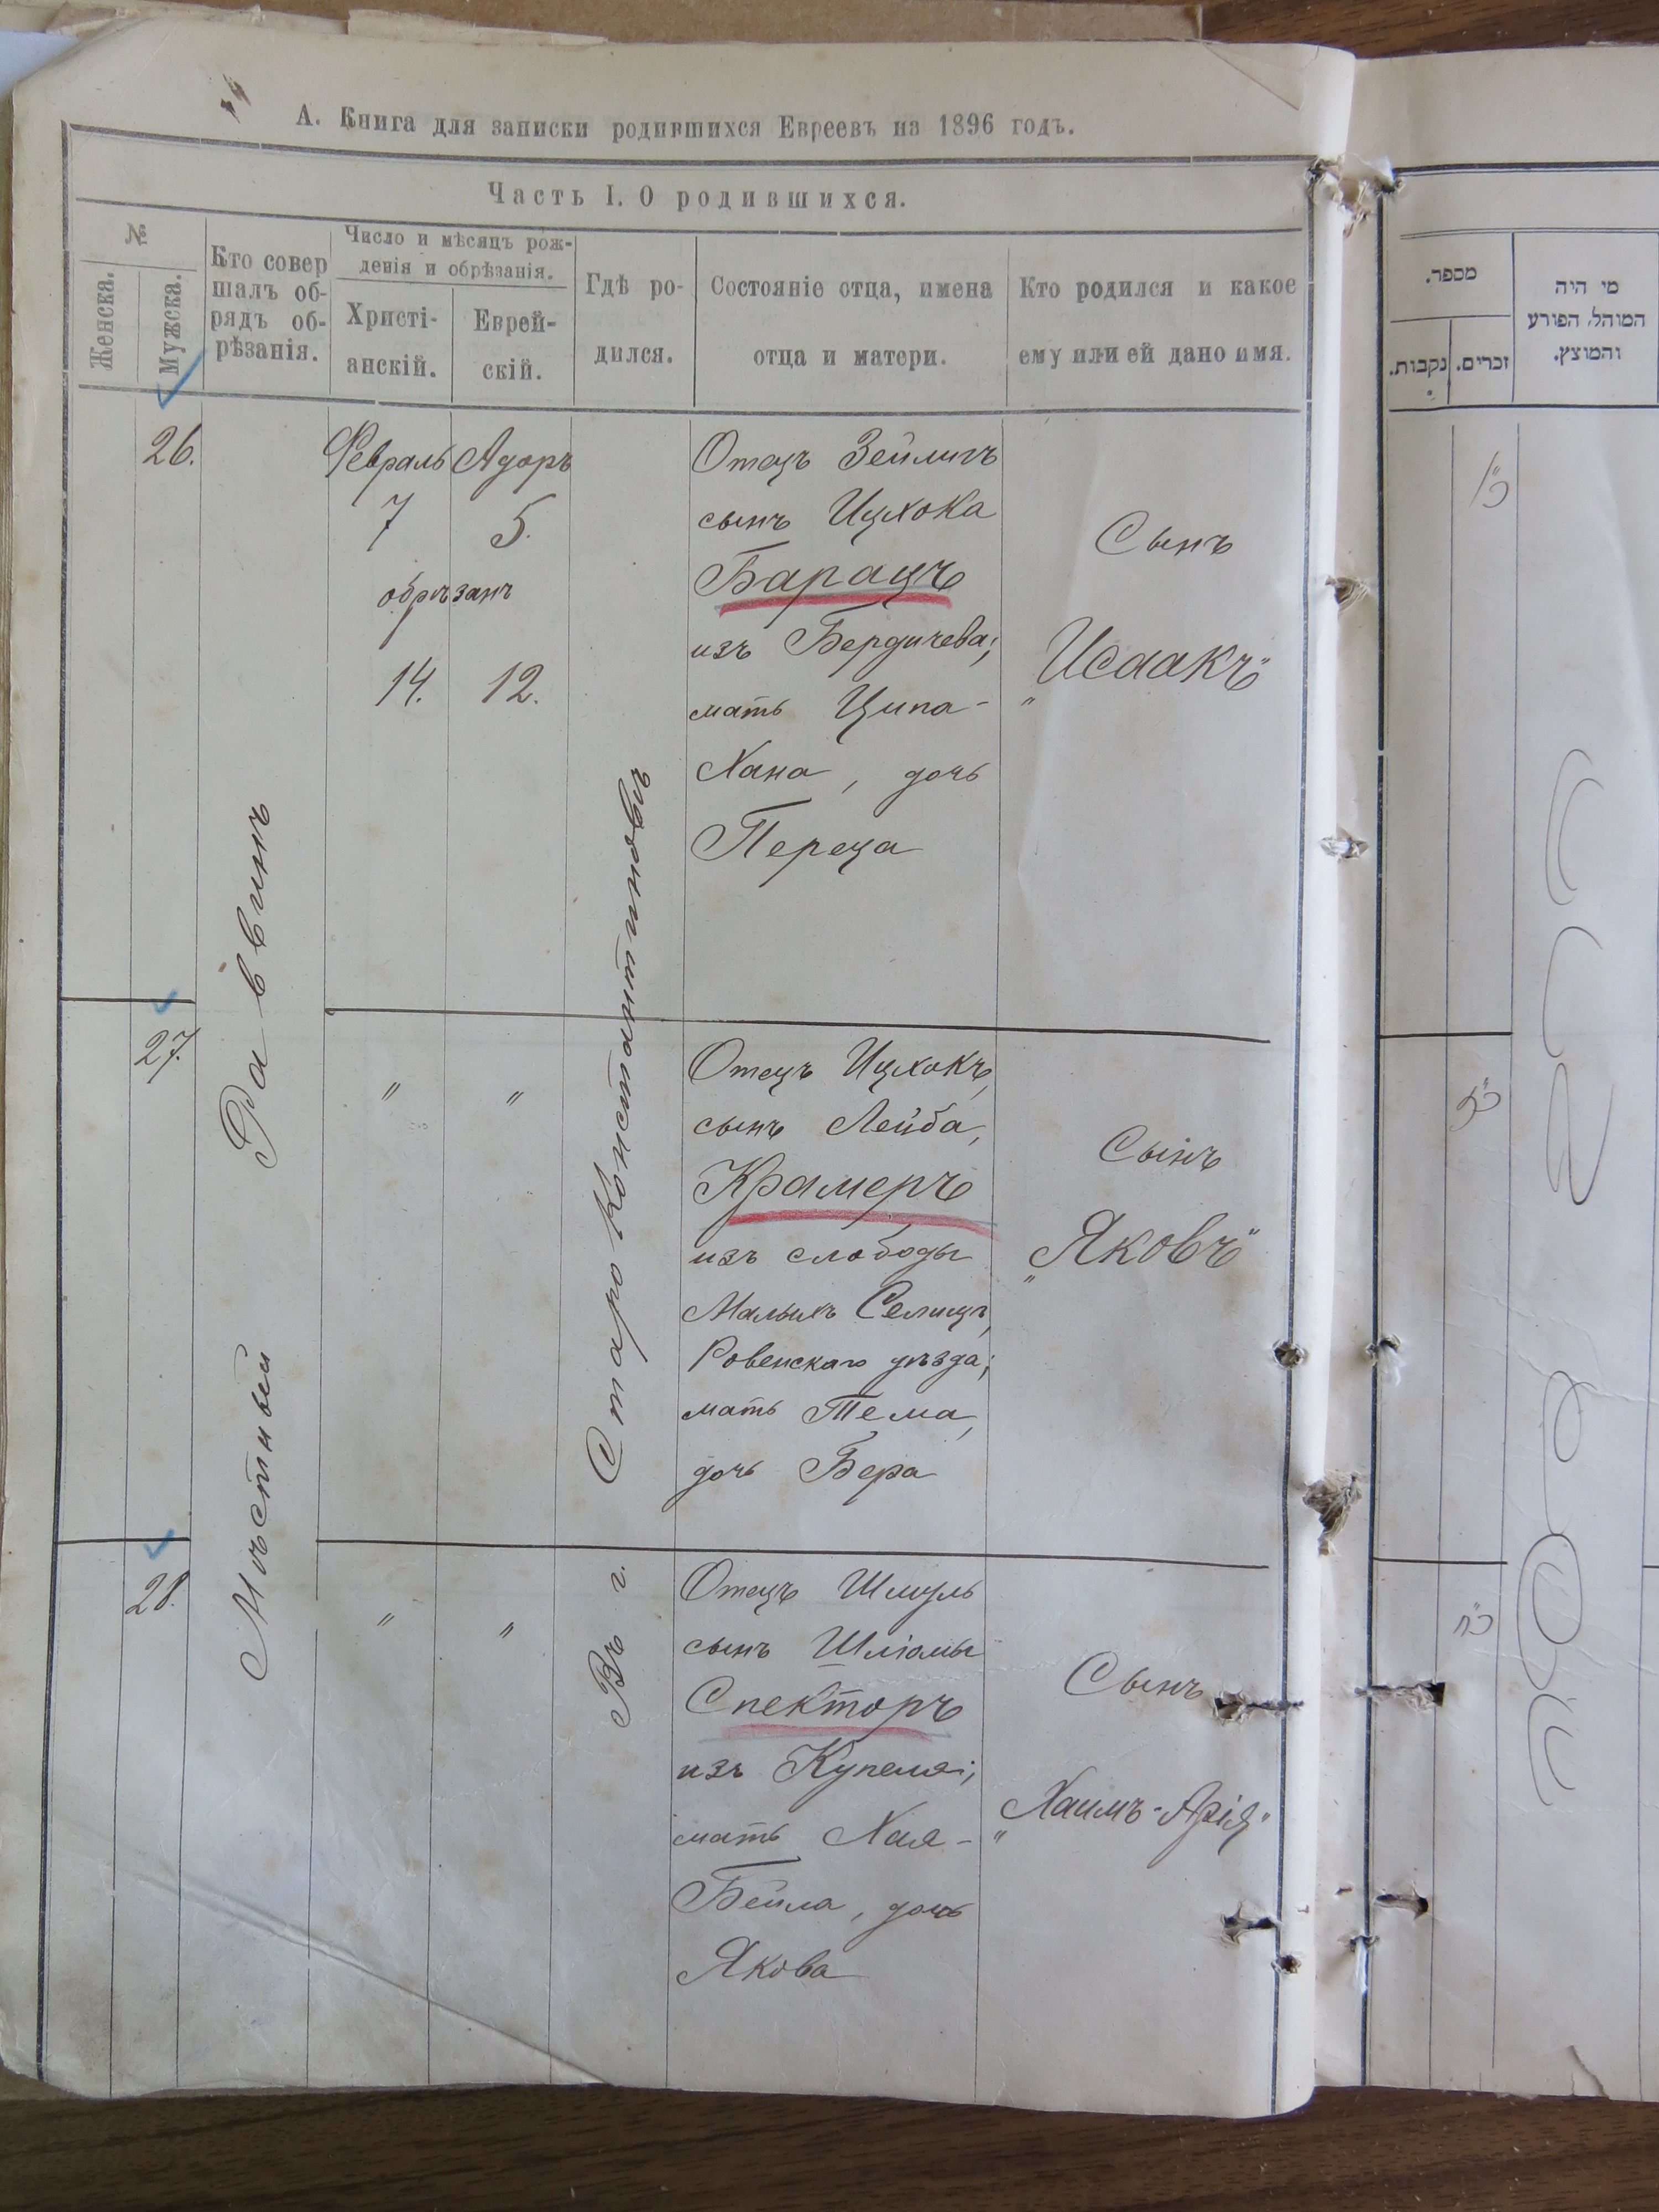 А. Книга для записки родившихся Евреевъ на 1896 годъ.
Часть I. О родившихся.
№
Женска.
Мужска.
Кто совер
шалъ об-
рядъ об-
рѣзанія.
Число и мѣсяцъ рож-
денія и обрѣзанія.
Христі-
анскій.
Еврей-
скій.
Гдѣ ро-
дился.
Состояніе отца, имена
отца и матери.
Кто родился и какое
ему или ей дано имя.
26.
Февраль Адоръ
7 5.
обрѣзанъ
14. 12.
Отецъ Зейлигъ
сынъ Ицхока
Барацъ
изъ Бердичева;
мать Ципа-
Хана, дочь
Переца
Сынъ
„Исаакъ"
Мѣстный Раввинъ
Въ г. Староконстантиновѣ
27.
" "
Отецъ Ицхокъ,
сынъ Лейба,
Крамеръ
изъ слободы
Малыхъ Селищъ,
Ровенскаго уѣзда;
мать Тема,
дочь Бера
Сынъ
„Яковъ"
28.
" "
Отецъ Шмуль
сынъ Шліомы
Спекторъ
изъ Купеля;
мать Хая-
Бейла, дочь
Якова
Сынъ
„Хаимъ-Арія"
מספר.
נקבות.
זכרים.
מי היה
המוהל, הפורע
והמוצץ.
כ"ו
כ"ז
כ"ח